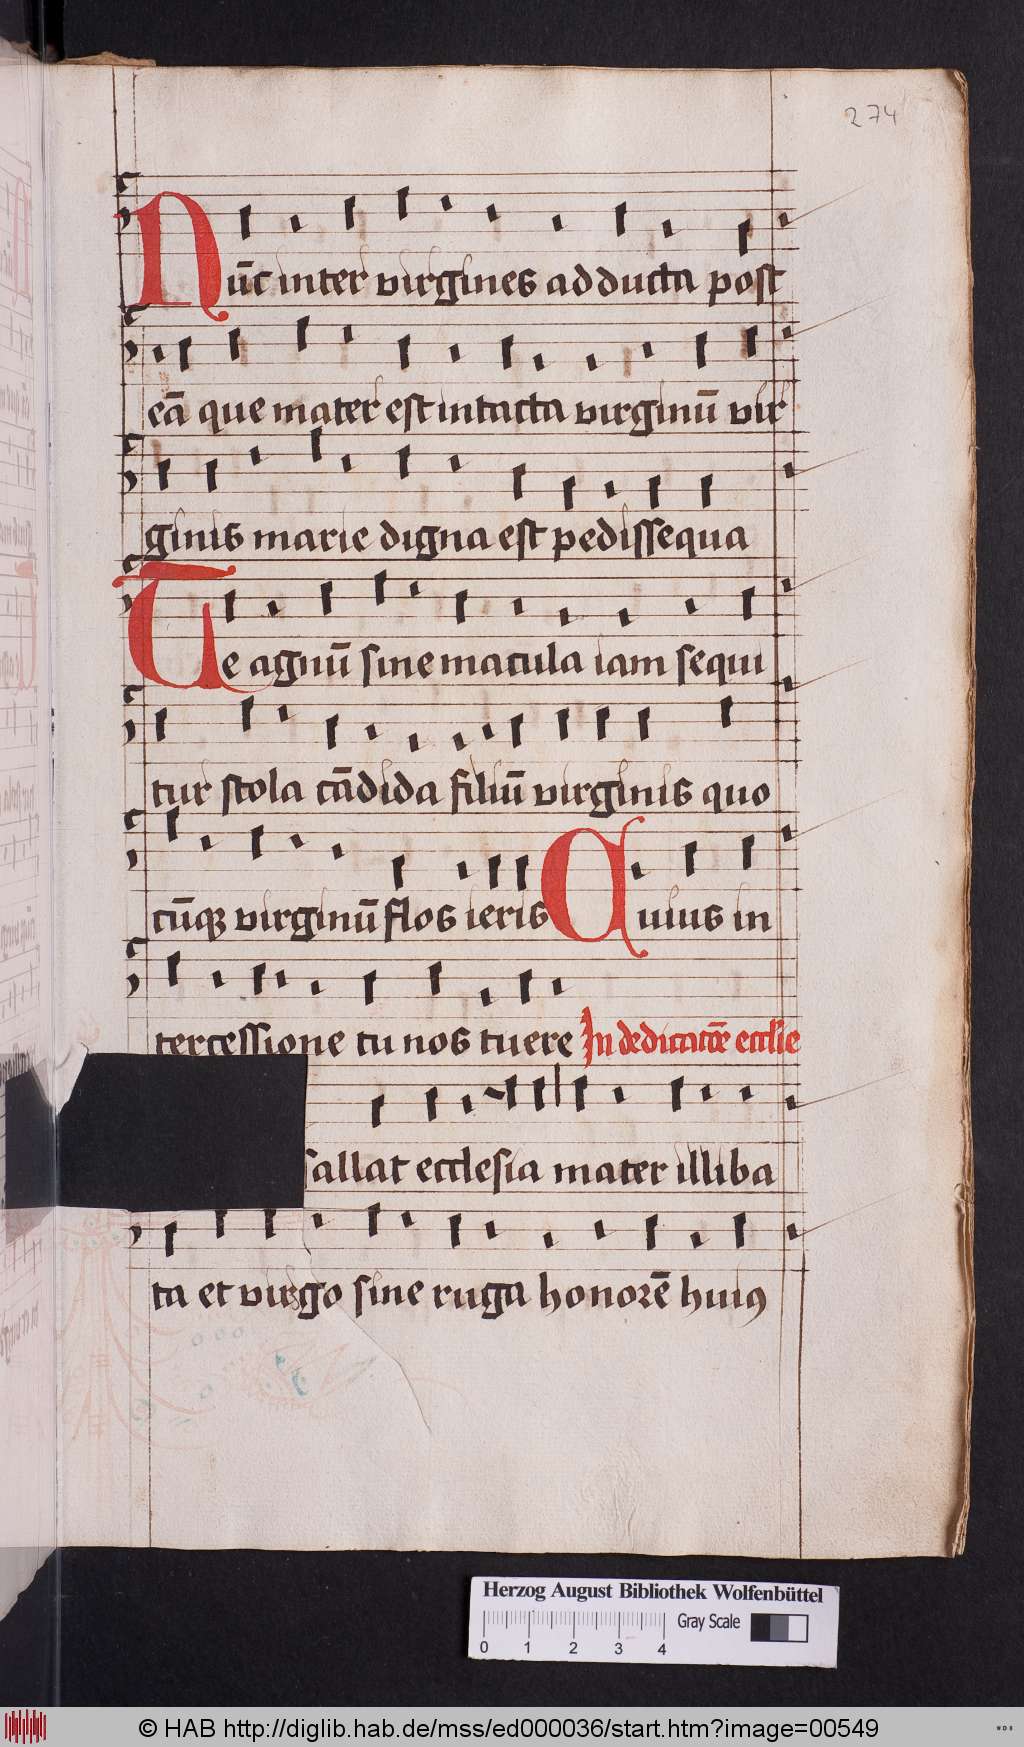 274
Nūc inter virgines adducta post
eā que mater est intacta virginū vir
ginis marie digna est pedissequa
Te agnū sine macula iam sequi
tur stola cādida filiū virginis quo
cūqꝫ virginū flos ieris Cuius in
tercessione tu nos tuere In dedicatōe ecclīe
sallat ecclesia mater illiba
ta et virgo sine ruga honorē huiꝰ
Herzog August Bibliothek Wolfenbüttel
Gray Scale
0 1 2 3 4
© HAB http://diglib.hab.de/mss/ed000036/start.htm?image=00549